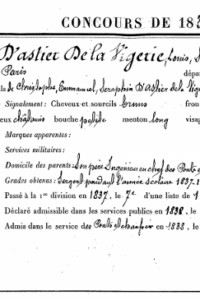 CONCOURS DE 183
D'astier De la Vigerie, Louis, S
Paris dépa
de Christophe, Emmanuel, Séraphin D'astier de la Vige
Signalement : Cheveux et sourcils bruns fron
eux châtains bouche petite menton long visag
Marques apparentes :
Services militaires :
Domicile des parents : Son père Ingénieur en chef des Ponts
Grades obtenus : Sergent pendant l'année scolaire 1837-1
Passé à la 1re division en 1837, le 7e d'une liste de 1
Déclaré admissible dans les services publics en 1838, le
Admis dans le service des Ponts et chaussées en 1838, le